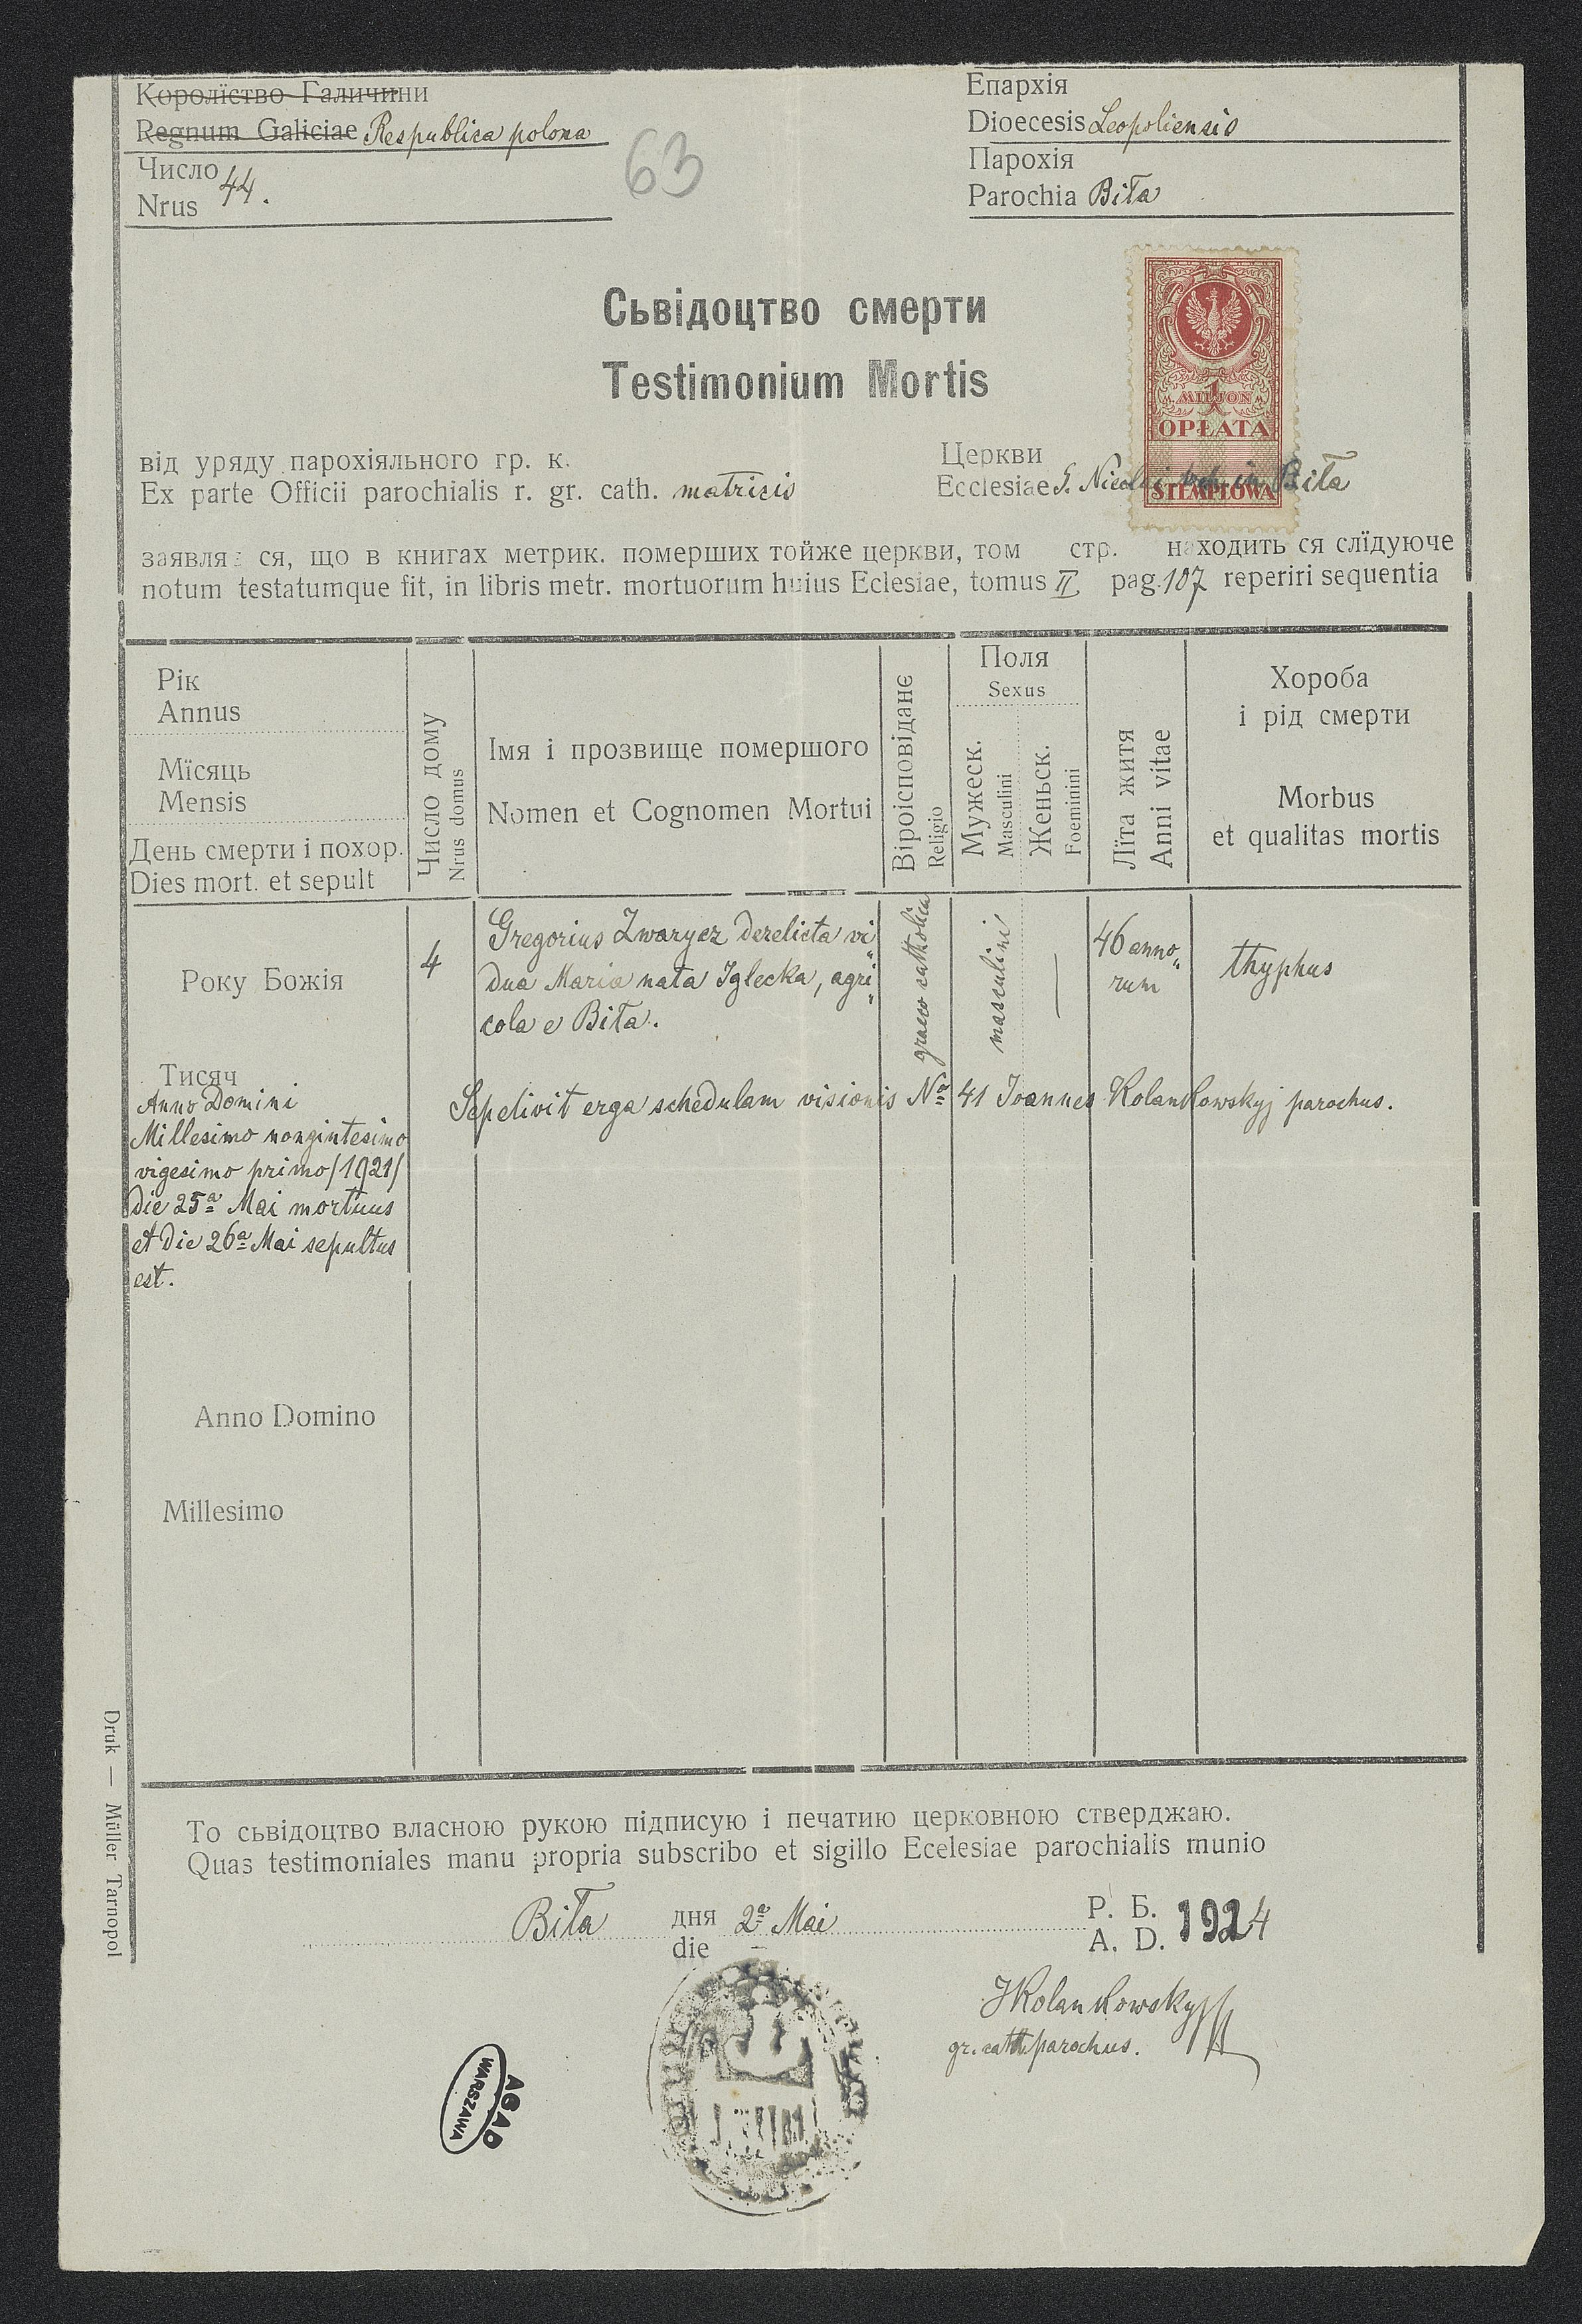 Королїство Галичини
Regnum Galiciae Respublica polona
Число
Nrus 44.
63
Епархія
Dioecesis Leopoliensis
Парохія
Parochia Biła
Сьвідоцтво смерти
Testimonium Mortis
1
MILJON
OPŁATA
STEMPLOWA
від уряду парохіяльного гр. к.
Ex parte Officii parochialis r. gr. cath. matricis
Церкви
Ecclesiae S. Nicolai in Biła
заявляє ся, що в книгах метрик. померших тойже церкви, том стр. находить ся слїдуюче
notum testatumque fit, in libris metr. mortuorum huius Eclesiae, tomus II pag. 107 reperiri sequentia
Рік
Annus
Мїсяць
Mensis
День смерти і похор.
Dies mort. et sepult
Число дому
Nrus domus
Імя і прозвище помершого
Nomen et Cognomen Mortui
Віроісповіданє
Religio
Поля
Sexus
Мужеск.
Masculini
Женьск.
Foeminini
Лїта житя
Anni vitae
Хороба
і рід смерти
Morbus
et qualitas mortis
Року Божія
4
Gregorius Zwarycz derelicta vi„
dua Maria nata Iglecka, agri„
cola e Biła.
graeco catholica
masculini
—
46 anno„
rum
thyphus
Тисяч
Sepelivit erga schedulam visionis No 41 Joannes Kolankowskyj parochus.
Anno Domini
Millesimo nongintesimo
vigesimo primo /1921/
die 25a Mai mortuus
et die 26a Mai sepultus
est.
Anno Domino
Millesimo
Druk — Müller Tarnopol
То сьвідоцтво власною рукою підписую і печатию церковною стверджаю.
Quas testimoniales manu propria subscribo et sigillo Ecelesiae parochialis munio
Biła дня 2a Mai Р. Б. 1924
die A. D.
JKolankowskyj
gr. cath. parochus.
AGAD
WARSZAWA